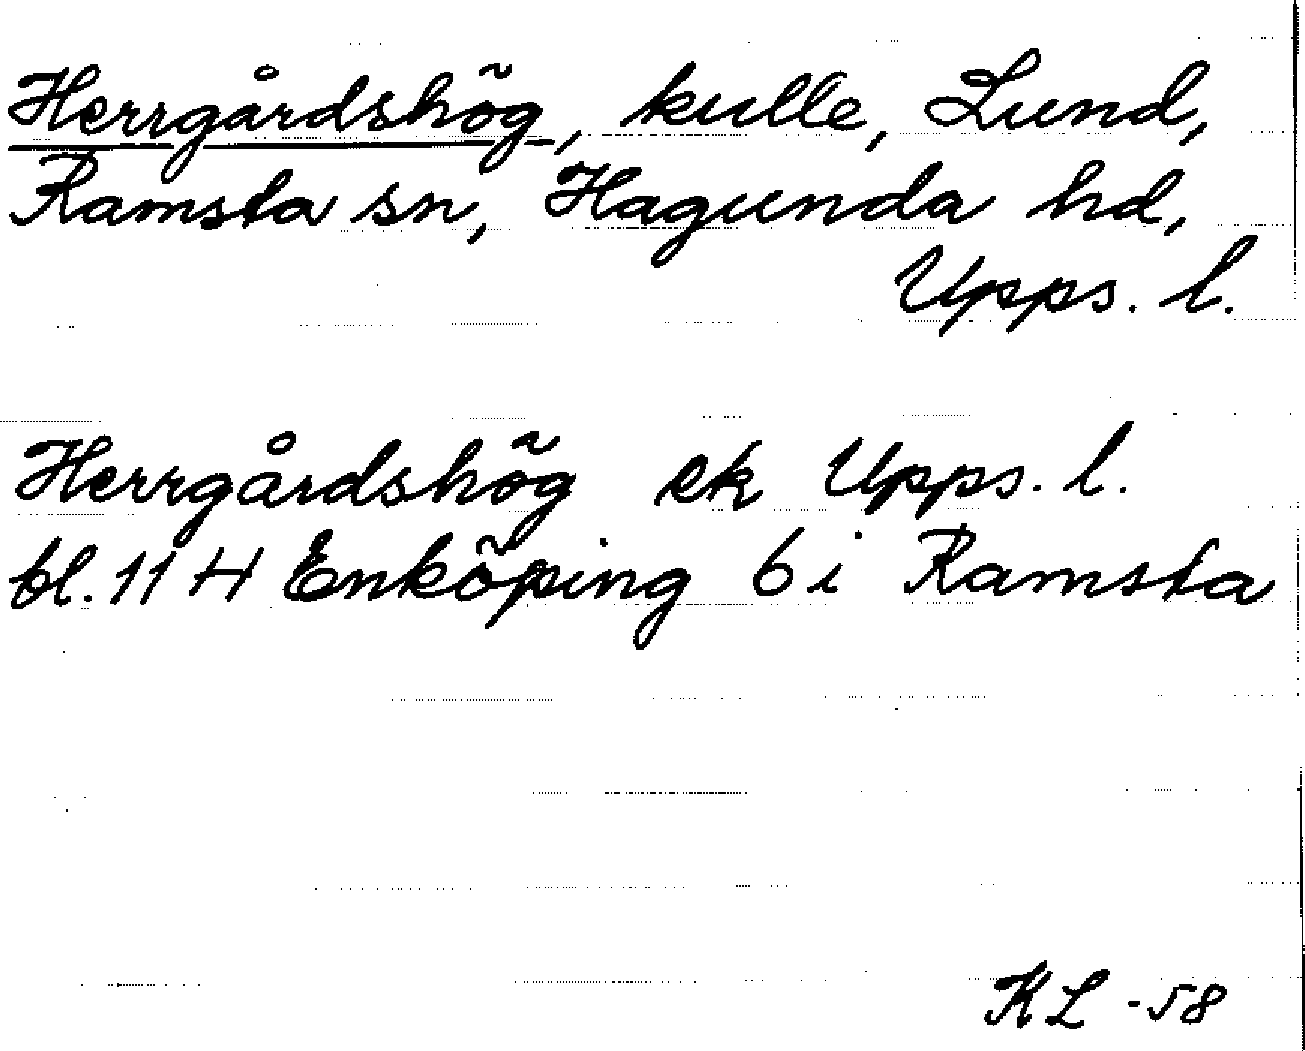 Herrgårdshög, kulle, Lund,
Ramsta sn, Hagunda hd,
Upps. l.
Herrgårdshög ek Upps. l.
bl. 11 H Enköping 6 i Ramsta
KL -58